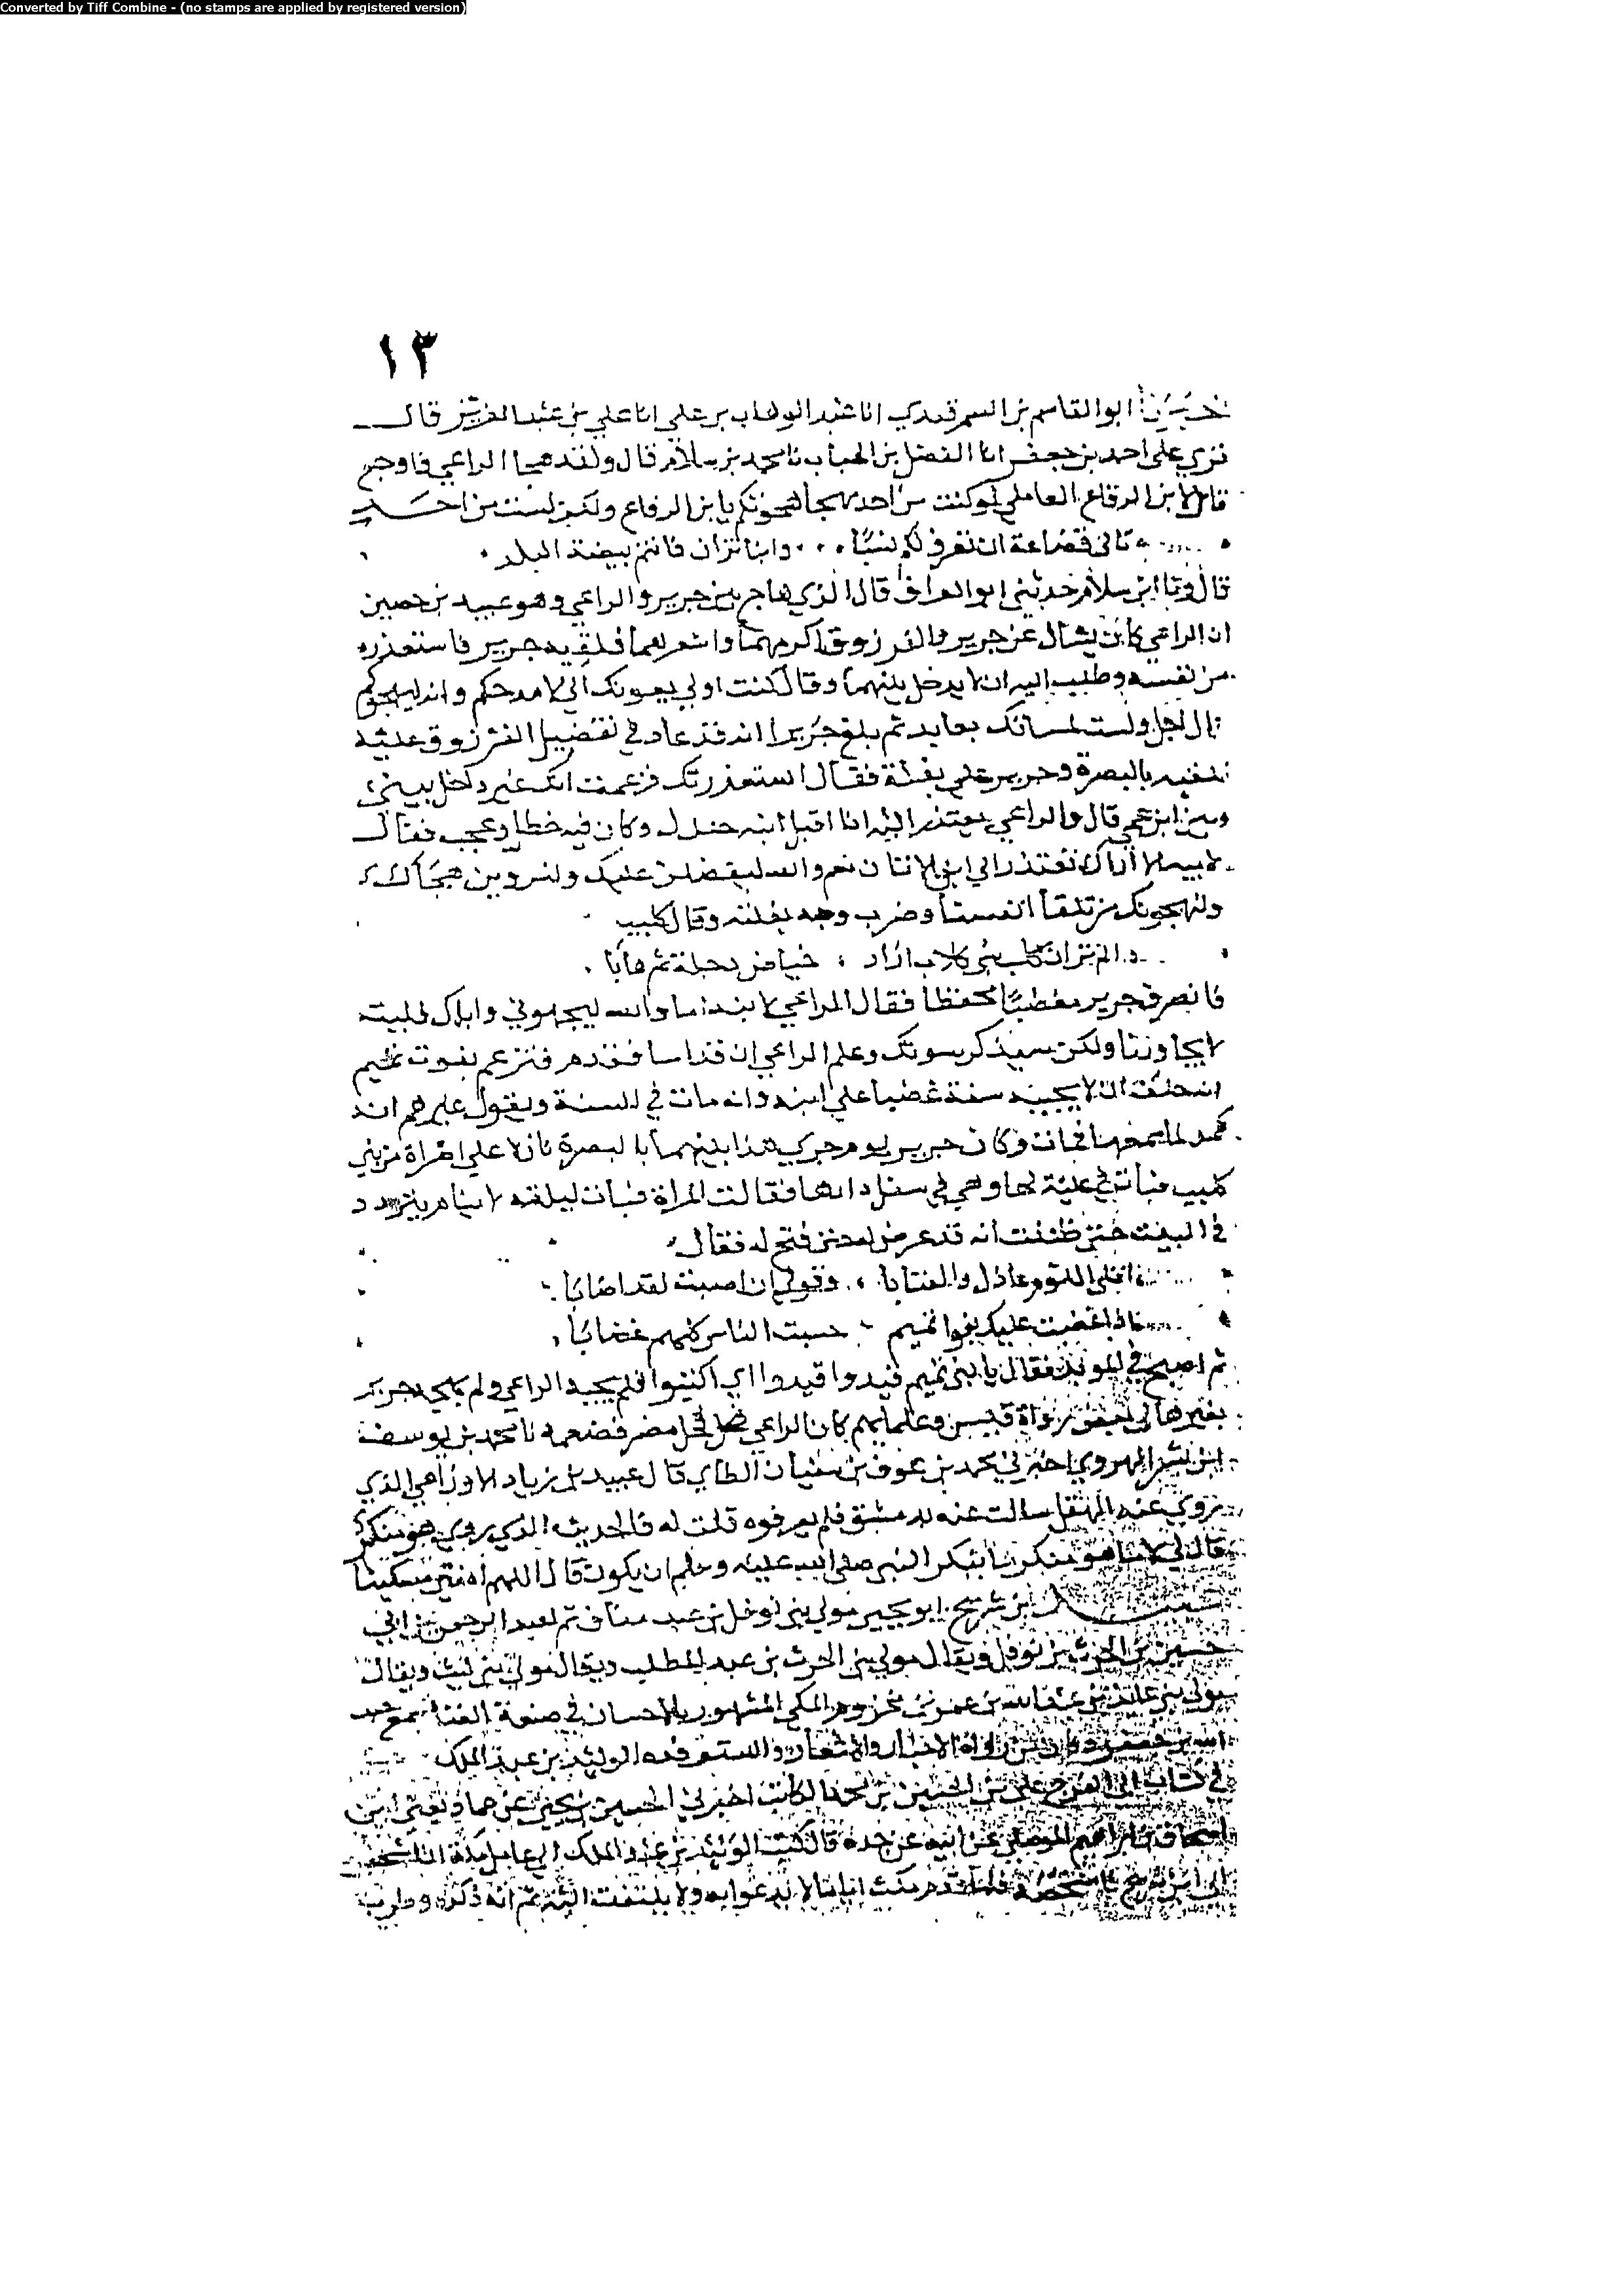 Converted by Tiff Combine - (no stamps are applied by registered version)
١٣
ابو القاسم بن السمرقندي انا عبد الوهاب بن علي انا علي بن عبد العزيز قال
قري على احمد بن جعفر انا الفضل بن الحباب نا محمد بن سلام قال ولقد هجا الراعي فاوجع
قال لابن الرقاع العاملي لو كنت من احد يهجا هجوتكم يا بن الرقاع ولكن لست من احد
تابى قضاعة ان تعرف لكم نسبا وابنا نزار فانتم بيضة البلد
قال ونا ابن سلام حدثني ابو الغراف قال الذي هاج بين جرير والراعي وهو عبيد بن حصين
ان الراعي كان يسال عن جرير والفرزدق اكرمهما واشعرهما فلقيه جرير فاستعذره
من نفسه وطلب اليه ان لا يدخل بينهما وقال كنت اولى بعونك اني لامدحكم وانه ليهجوكم
قال اجل ولست لمساتك بعايد ثم بلغ جريرا انه قد عاد في تفضيل الفرزدق عليه
فلقيه بالبصرة وجرير على بغلة فقال استعذرتك فزعمت انك غير داخل بيني
وبين ابن عمي قال والراعي يعتذر اليه اذا اقبل ابنه جندل وكان فيه خطل وعجب فقال
لابيه الا اراك تعتذر الى ابن الاتان نعم والله ليفضلن عليك ولنروين هجاك
ولنهجونك من تلقا انفسنا وضرب وجه بغلته وقال
الم تر ان كلب بني كلاب اراد حياض دجلة ثم هابا
فانصرف جرير مغضبا محفظا فقال الراعي لابنه اما والله ليهجوني واياك فليته
لا يجاوزنا ولكن سيذكر سوتك وعلم الراعي ان قد اسا فندم فتزعم بنوت نمير
انه حلف ان لا يجيبه سنة غضبا على ابنه وانه مات في السنة ويقول غيرهم انه
كمد لما سمعها فمات وكان جرير يوم جرى هذا بينهما بالبصرة نازلا على امراة من بني
كليب فبات في علية لها وهي في سفل دارها فقالت المراة فبات ليلته لا ينام يتردد
في البيت حتى ظننت انه قد عرض له حتى فتح له فقال
اقلي اللوم عاذل والعتابا وقولي ان اصبت لقد اصابا
اذا غضبت عليك بنو تميم حسبت الناس كلهم غضابا
ثم اصبح في المربد فقال يا بني تميم قيدوا قيدوا اي اكتبوا فلم يجبه الراعي ولم يهجه جرير
بغيرها قال بعض رواة قيس وعلمايهم كان الراعي فحل مضر فضغمه نا محمد بن يوسف
ابن بشر الهروي اخبرني محمد بن عوف بن سفيان الطاي قال عبيد بن زياد الاوزاعي الذي
روى عنه الهقل سالت عنه بدمشق فلم يعرفوه قلت له فالحديث الذي يروى هو منكر
قال لي لا ما هو منكر ما ينكر النبي صلى الله عليه وسلم ان يكون قال اللهم امتني مسكينا
ابن سريج ابو يحيى مولى بني نوفل بن عبد مناف ثم لعبد الرحمن بن ابي
حسين بن الحرث بن نوفل ويقال مولى بني الحرث بن عبد المطلب ويقال مولى بني ليث ويقال
مولى بني عايذ بن عبد الله بن عمر بن مخزوم المكي المشهور بالاحسان في صنعة الغنا سمع
وكان من رواة الاخبار والاشعار واستقدمه الوليد بن عبد الملك
في كتاب ابي الفرج علي بن الحسين بن محمد الكاتب اخبرني الحسين بن يحيى عن حماد يعني ابن
اسحاق بن ابراهيم الموصلي عن ابيه عن جده قال كتب الوليد بن عبد الملك الى عامل مكة ان اشخص
الى ابن سريج فاشخصه فلما قدم مكث اياما لا يدعوا به ولا يلتفت اليه ثم انه ذكره وطرب